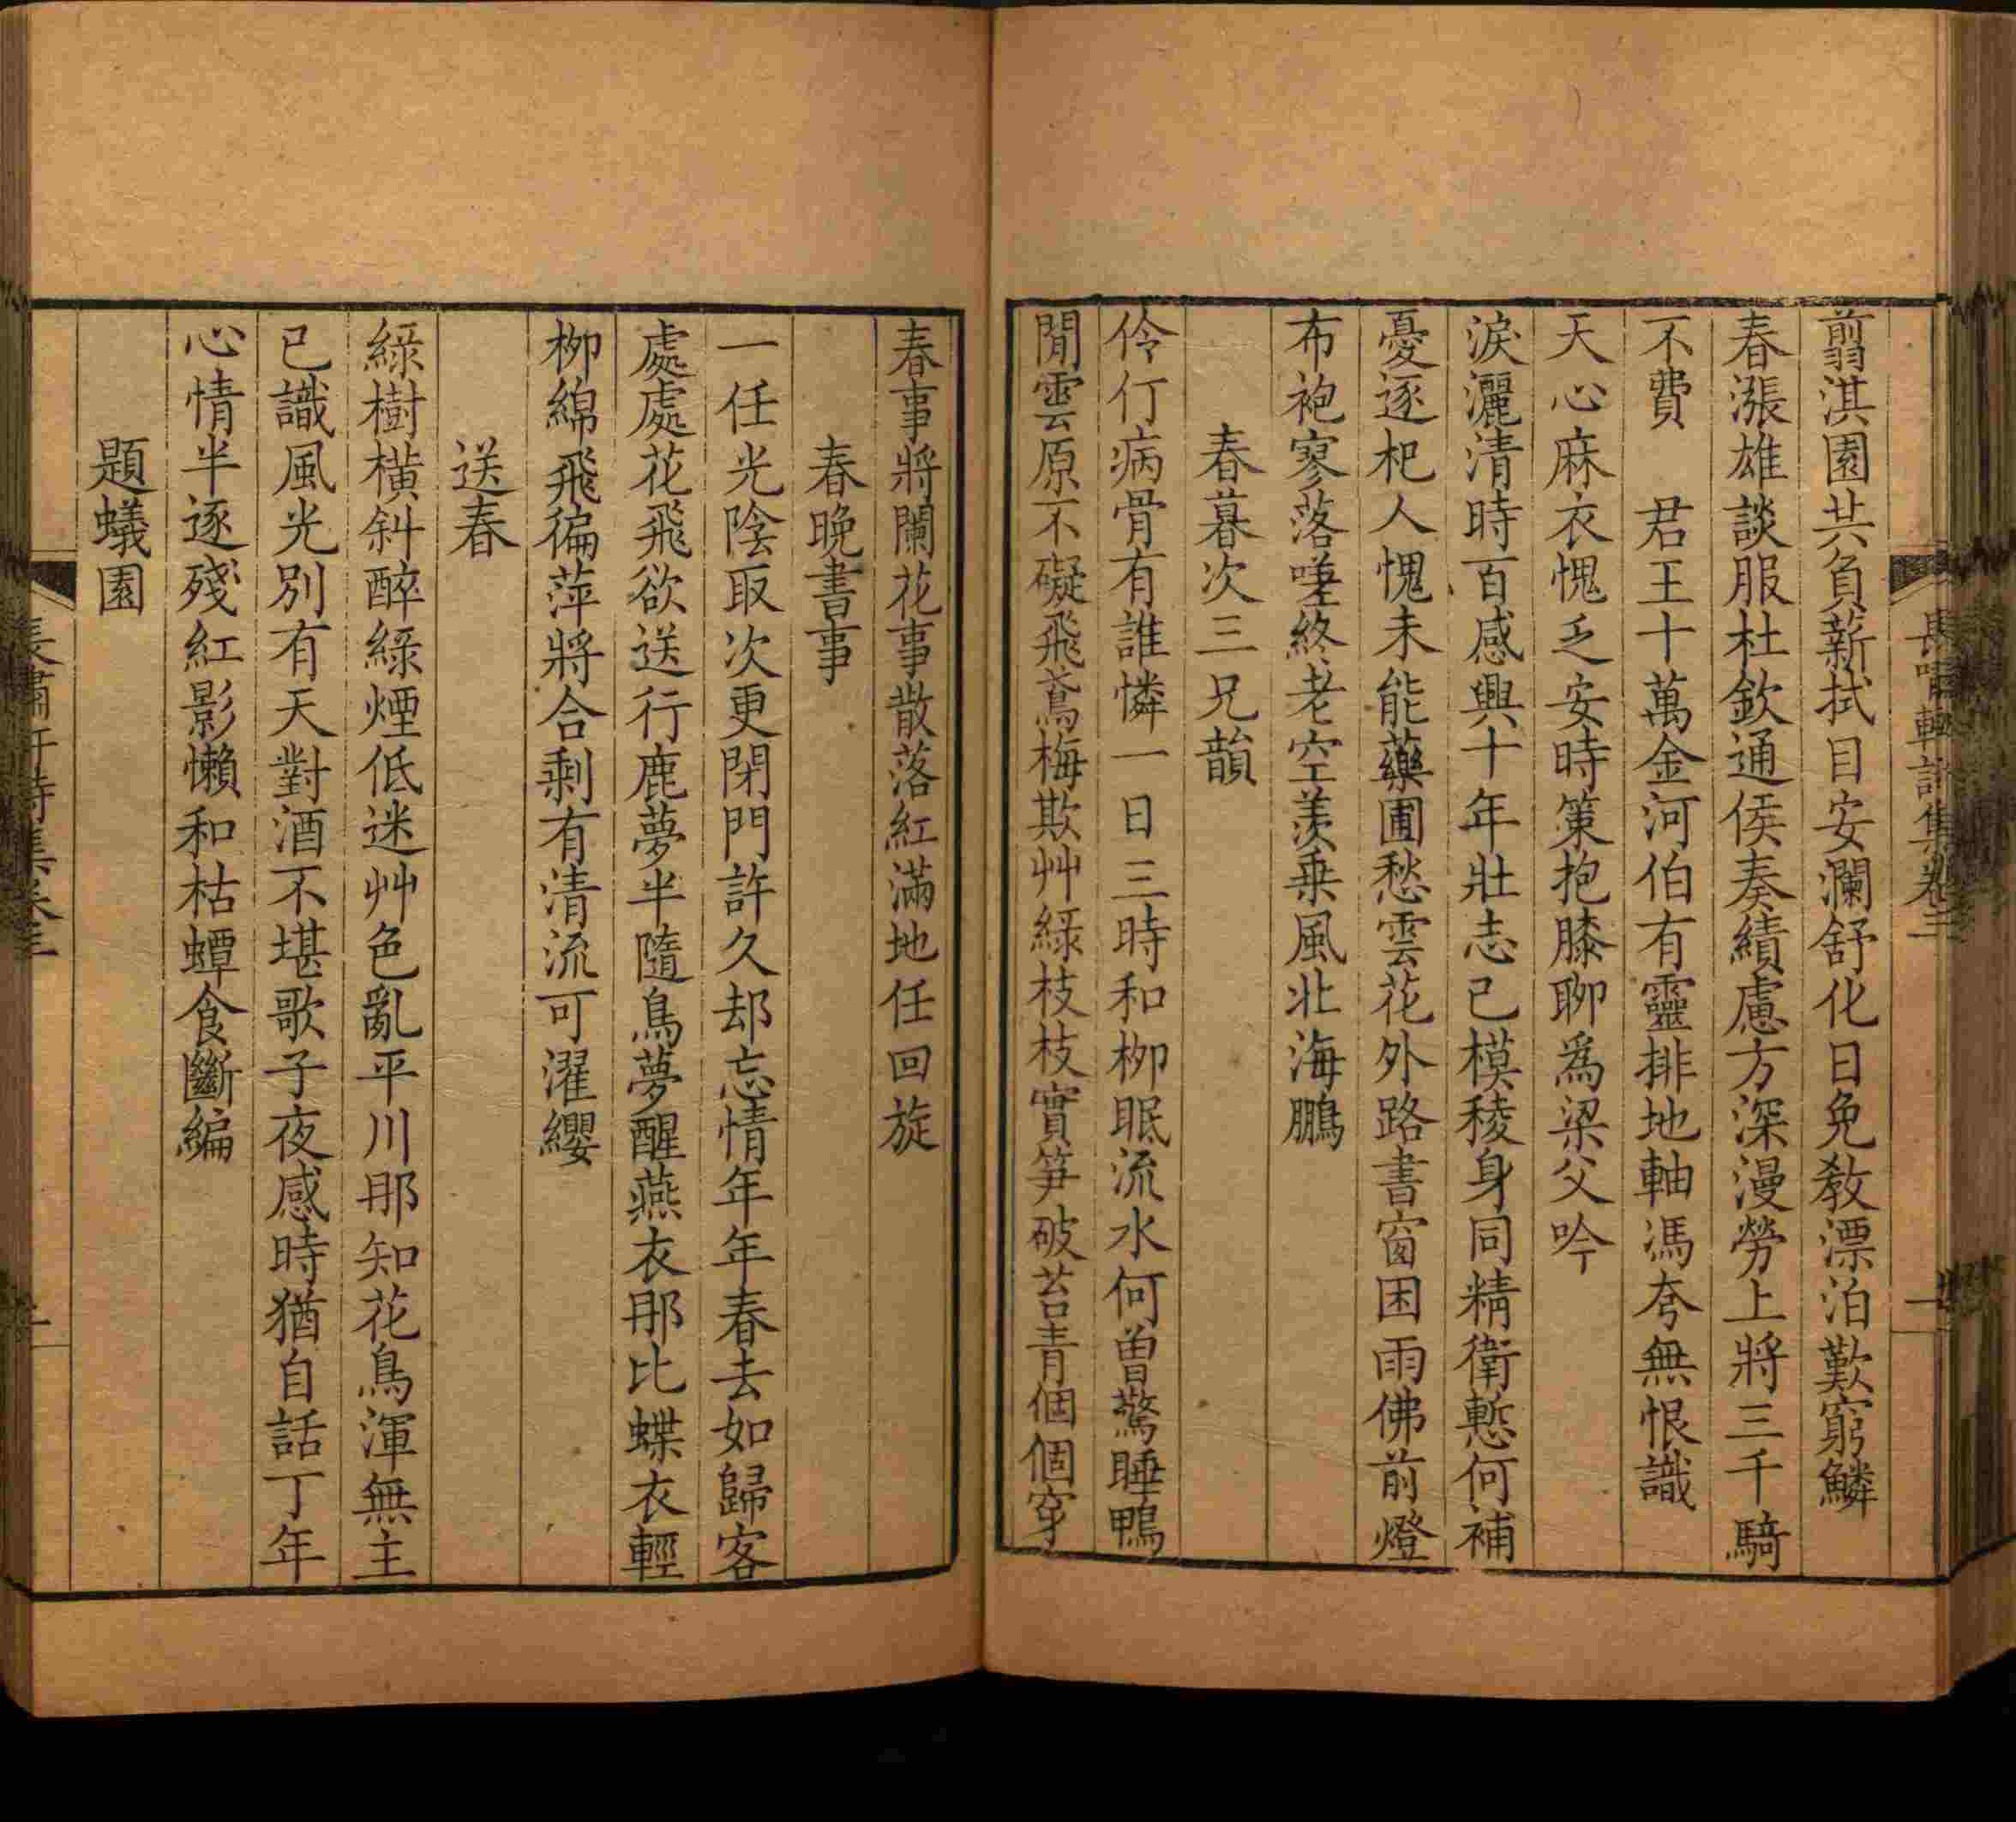 長嘯軒詩集卷三
一
翦淇園共負薪拭目安瀾舒化日免教漂泊歎窮鱗
春漲雄談服杜欽通侯奏績慮方深漫勞上將三千騎
不費　君王十萬金河伯有靈排地軸馮夸無恨識
天心麻衣愧乏安時策抱膝聊爲梁父吟
淚灑清時百感興十年壯志已模稜身同精衛慙何補
憂逐杞人愧未能藥圃愁雲花外路書窗困雨佛前燈
布袍寥落嗟終老空羨乗風北海鵬
春暮次三兄韻
伶仃病骨有誰憐一日三時和桺眠流水何曾驚睡鴨
閒雲原不礙飛鳶梅欺艸綠枝枝實笋破苔青個個穿
春事將闌花事散落紅滿地任回旋
春晚書事
一任光陰取次更閉門許久却忘情年年春去如歸客
處處花飛欲送行鹿夢半隨鳥夢醒燕衣那比蝶衣輕
桺綿飛徧萍將合剩有清流可濯纓
送春
綠樹橫斜醉綠煙低迷艸色亂平川那知花鳥渾無主
已識風光別有天對酒不堪歌子夜感時猶自話丁年
心情半逐殘紅影懶和枯蟫食斷編
題蟻園
長嘯軒詩集卷三